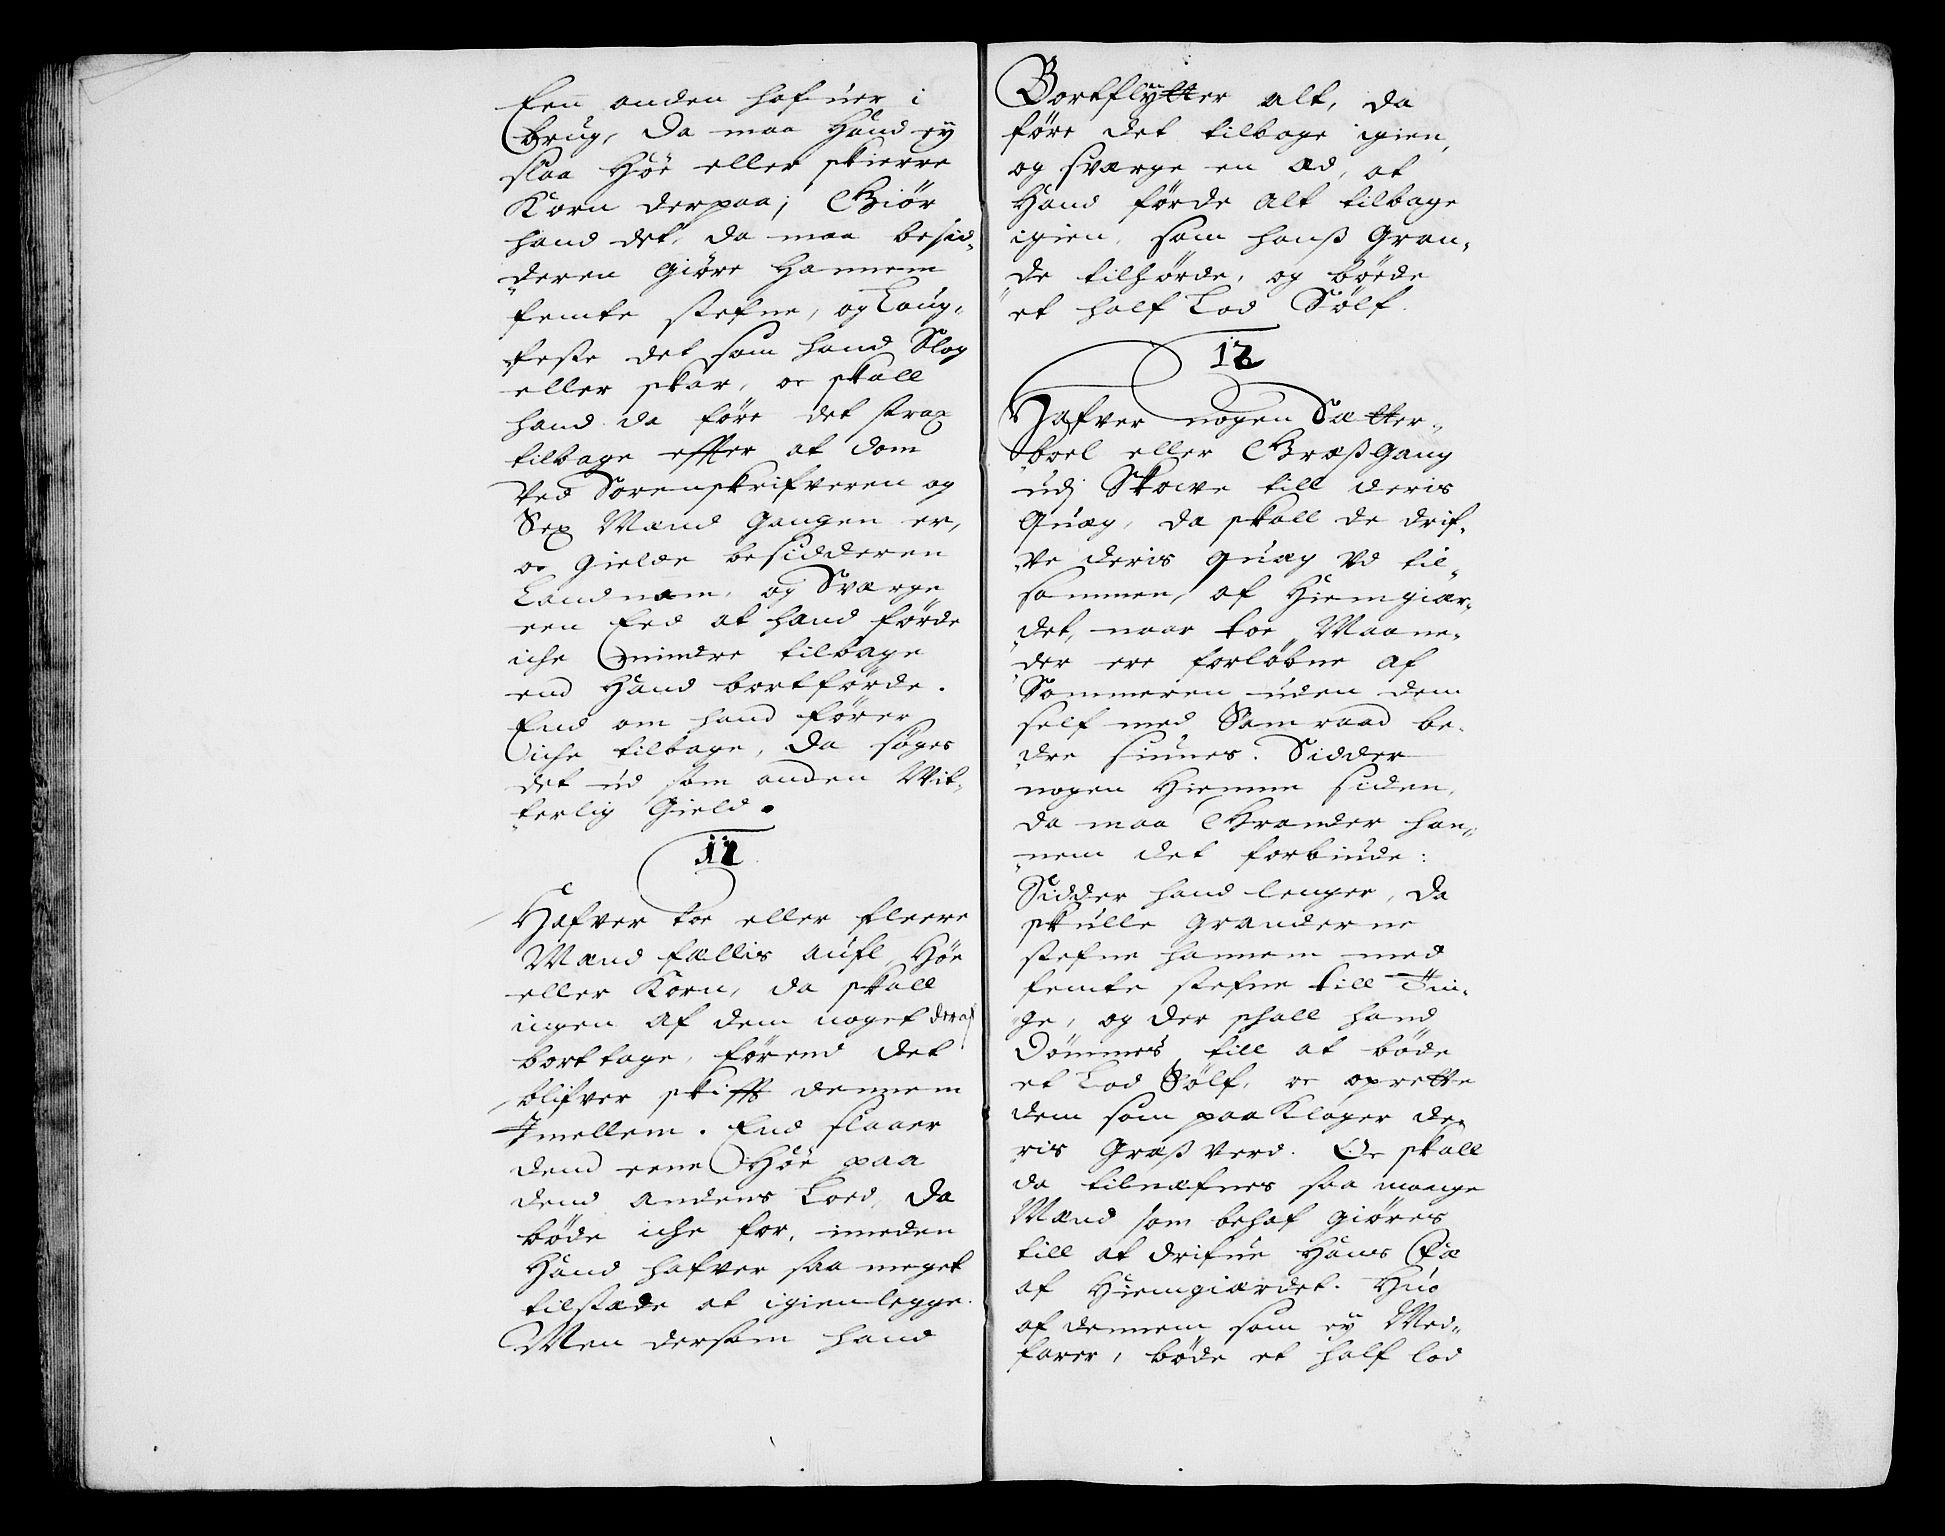 Een anden hafuer i
brug, da maa Hand ey
slaa Höe eller skierre
Korn derpaa; Giör
hand det, da maa besid„
deren Giöre Hannem
femte stefne, og Laug„
feste det som hand Slog
eller skar, oc skall
hand da före det strax
tilbage effter at dom
Ved Sorenskrifveren og
Sex Mænd Gangen er,
oc Gielde besidderen
Landnam, og Sværge
een Eed at hand förde
iche mindre tilbage
end Hand bortförde.
End om hand förer
iche tilbage, da söges
det ud som anden Vit„
terlig Gield.
11
Hafver toe eller fleere
Mænd fællis aufl, Höe
eller Korn, da skall
ingen af dem noget deraf
borttage, förend det
blifver skifft dennem
Imellem. End slaaer
dend eene Höe paa
dend andens Loed, da
böde iche for, imeden
Hand hafver saa meget
tilstæde at igienlegge.
Men dersom hand
Bortflytter alt, da
före det tilbage igien,
og sværge en Æd, at
Hand förde alt tilbage
igien, som hanß Gran„
de tilhörde, og böede
et half Lod Sölf.
12
Hafver nogen Sætter„
boel eller Græßgang
udj Skowe till deris
Quæg, da skall de drif„
ve deris quæg ud til„
sammen, af Hiemgiær„
det, naar toe Maane„
der ere forløbne af
Sommeren uden dem
self med Samraad be„
dre siunes. Sidder
nogen Hiemme siden,
da maa Grander han„
nem det forbiude:
Sidder hand lenger, da
skulle Granderne
stefne hannem med
femte stefne till Tin„
ge, og der skall hand
Dömmes till at böde
et Lod Sölf, oc oprette
dem som paaKlager de„
ris Græß verd. Oc skall
da tilnæfnes saa mange
Mænd som behof giöres
till at drifue Hans Fæ
af Hiemgiærdet. Huo
af dennem som ey Med„
farer, böde et half lod